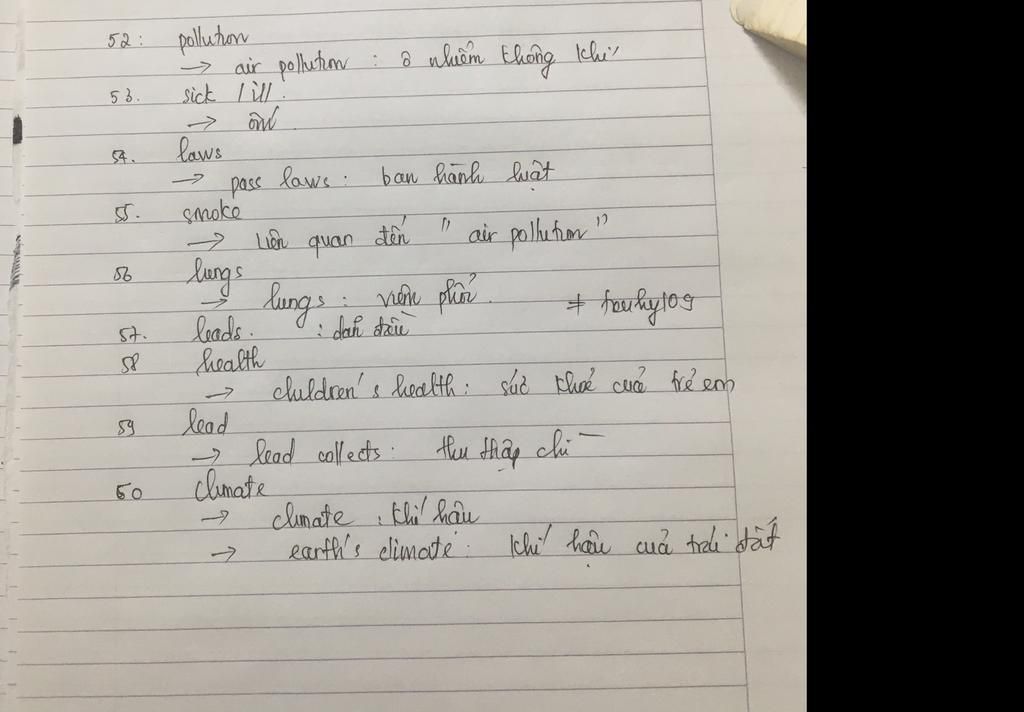 52: pollution
→ air pollution : ô nhiễm không khí
53. sick / ill.
→ ốm
54. laws
→ pass laws: ban hành luật
55. smoke
→ liên quan đến " air pollution "
56 lungs
→ lungs : viêm phổi. ≠
57. leads. : dẫn đầu
58 health
→ children's health: sức khoẻ cuả trẻ em
59 lead
→ lead collects: thu thập chì
60 climate
→ climate : khí hâu
→ earth's climate: khí hậu cuả trái đất